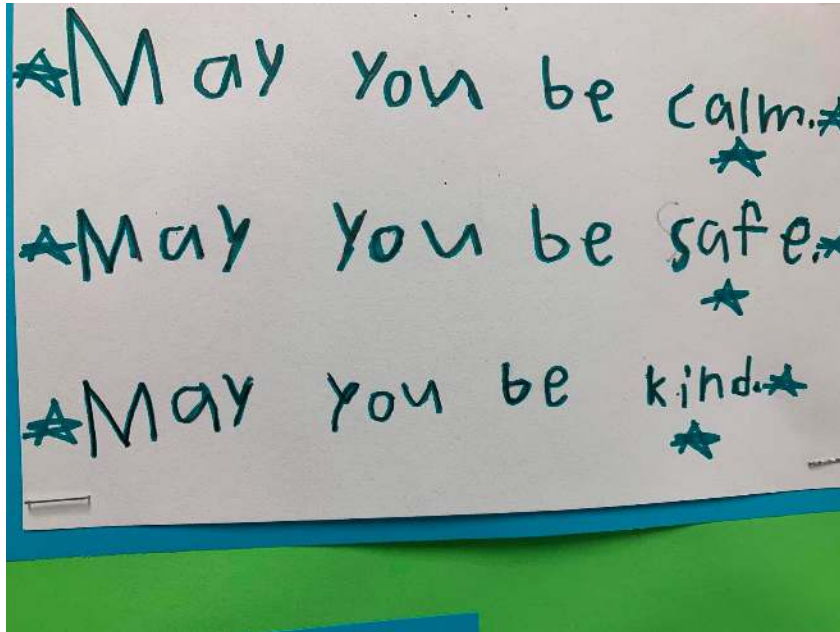 May you be calm.
May you be safe.
May you be kind.